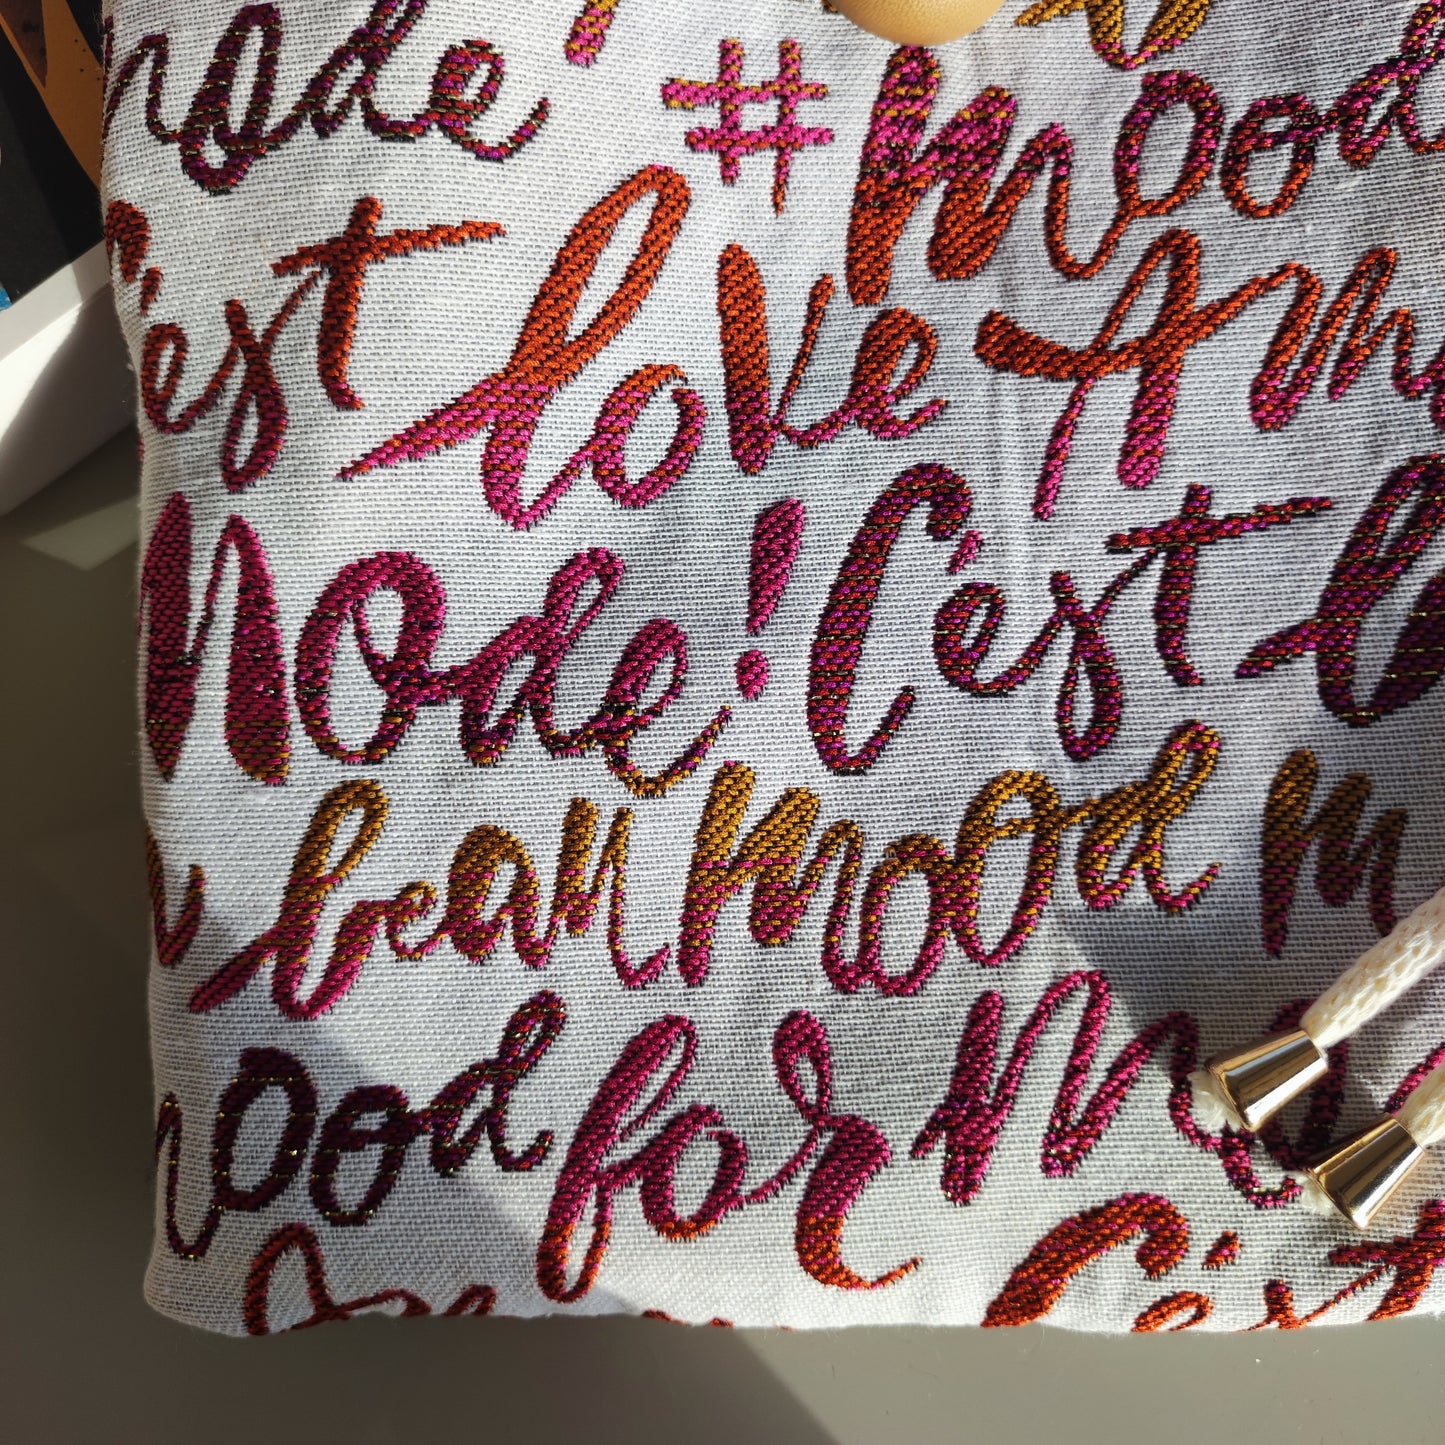 mode #mood
C'est love Am
Mode! C'est
bean mood m
mood for Mo
C'est